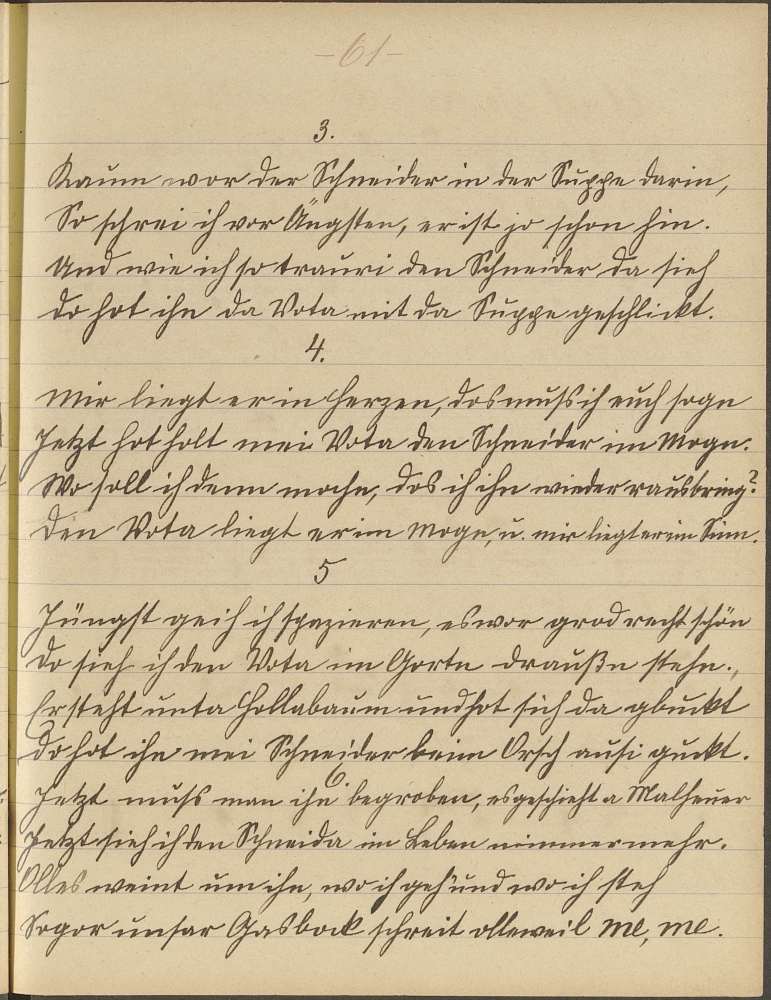 -61-
3.
Kaum wor der Schneider in der Suppe darin,
So schrei ich vor Ängsten, er ist jo schon hin.
Und wie ich so trauri den Schneider da sieh
do hot ihn da Vota mit da Suppe geschlickt.
4.
Mir liegt er in Herzen, dos muss ich euch sogn
Jetzt hot holt mei Vota den Schneider im Mogn.
Wo soll ich denn mochn, dos ich ihn wieder rausbring?
Den Vota liegt er im Mogn, u. mir liegt er im Sinn.
5
Jüngst geih ich spazieren, es wor grod recht schön
Do sieh ich den Vota im Gortn draußn stehn.,
Er steht unta Hollabaum und hot sich da gbuckt
Do hot ihn mei Schneider beim Orsch ausi guckt.
6
Jetzt muss man ihn begroben, es geschieht a Malheuer
Jetzt sieh ich den Schneida im Leben nimmermehr.
Olles weint um ihn, wo ich geh' und wo ich steh
Sogor unsar Gasbock schreit olleweil me, me.